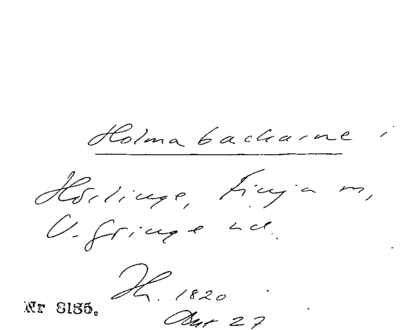 Holmabackarne i
Hörlinge, Finja m,
V. Göinge hd.
Hr. 1820
27
Nr 8185.